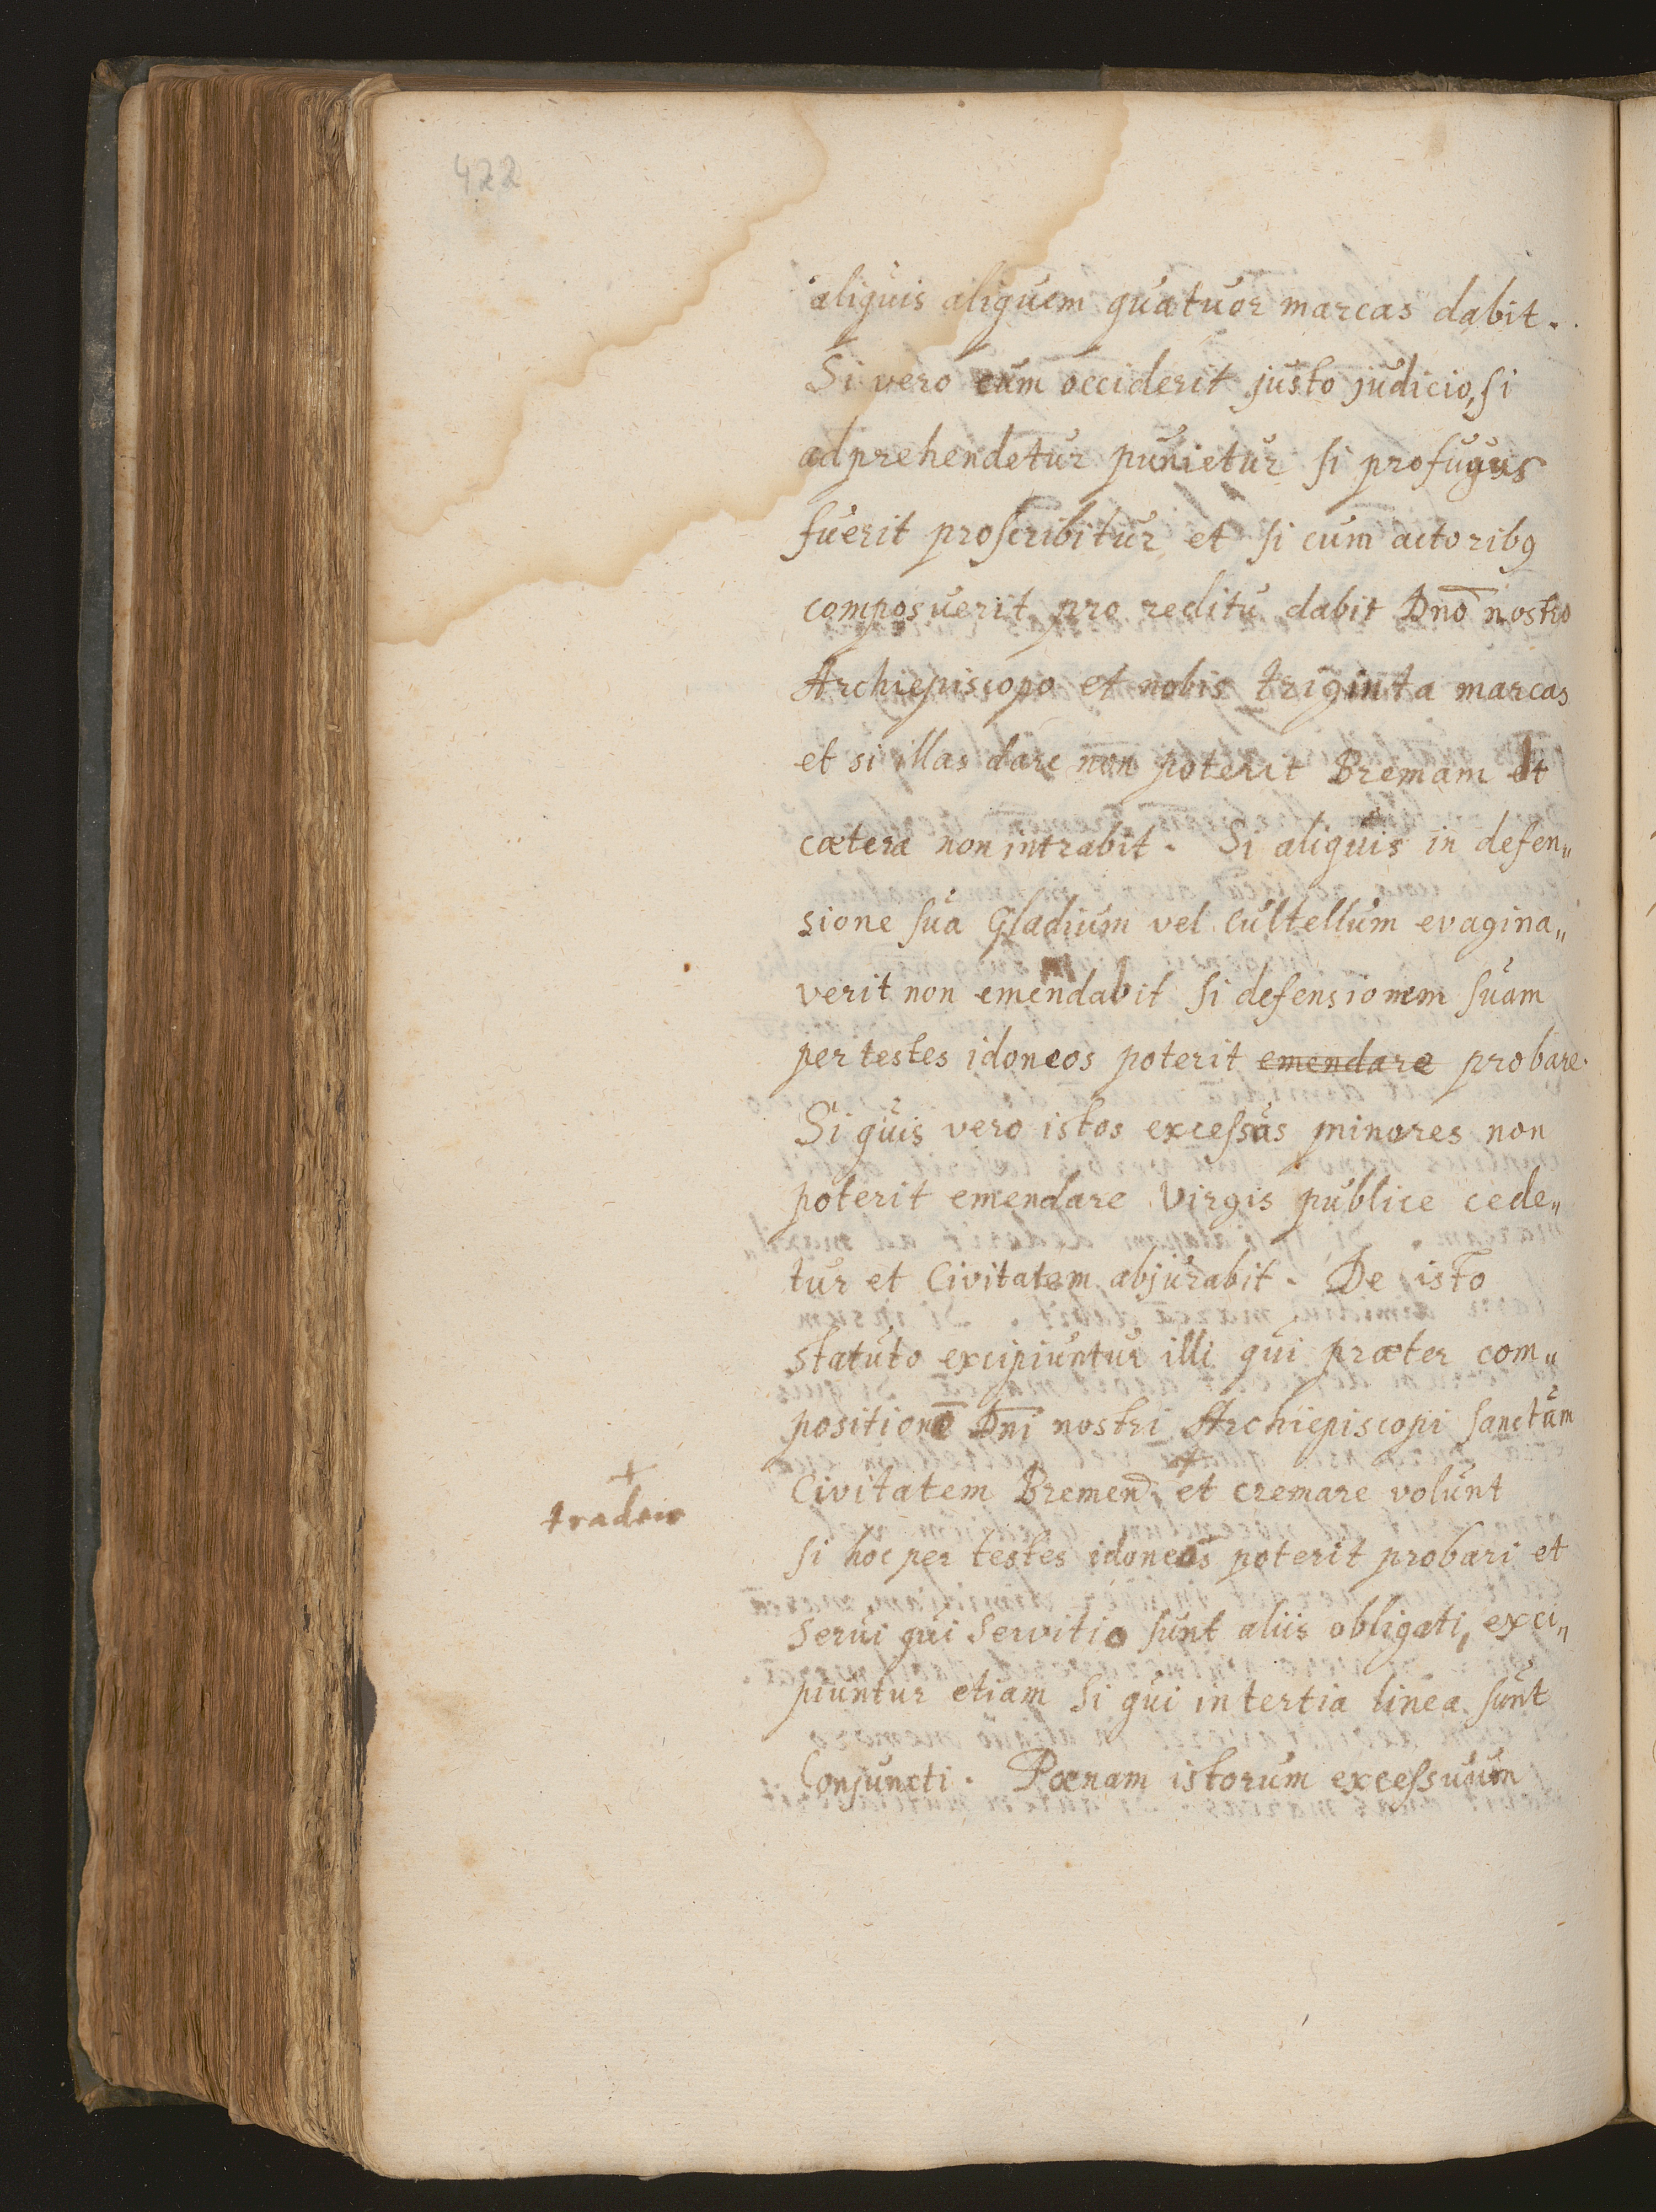 422
aliquis aliquem quatuor marcas dabit.
Si vero eum occiderit justo judicio, si
adprehendetur punietur si profugus
fuerit proscribitur, et si cum actoribꝯ
composuerit, pro reditu dabit Dn̄o nostro
Archiepiscopo et nobis triginta marcas
et si illas dare non poterit Bremam et
cætera non intrabit. Si aliquis in defen„
sione sua Gladium vel cultellum evagina„
verit non emendabit si defensionem suam
per testes idoneos poterit emendare probare.
Si quis vero istos excessus minores non
poterit emendare Virgis publice cede„
tur et Civitatem abjurabit. De isto
statuto excipiuntur illi qui præter com„
positionē Dn̄i nostri Archiepiscopi sanctam
+
Civitatem Bremen. et cremare volunt
+
tradere
si hoc per testes idoneos poterit probari et
servi qui servitio sunt aliis obligati, exci„
piuntur etiam si qui in tertia linea sunt
Conjuncti. Pœnam istorum excessuum